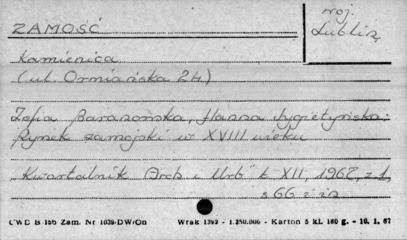 ZAMOŚĆ
woj.
Lublin
Kamienica
(ul. Ormiańska 24)
Zofia Baranowska, Hanna Sygietyńska:
Rynek zamojski w XVIII wieku
„Kwartalnik Arch. i Urb" t. XII, 1967, z 1,
s 66 i in
CWD B 155 Zam. Nr 1039-DW/On Wrak 1392 - 1.250.000 - Karton 5 kl. 180 g. - 10. 1. 67